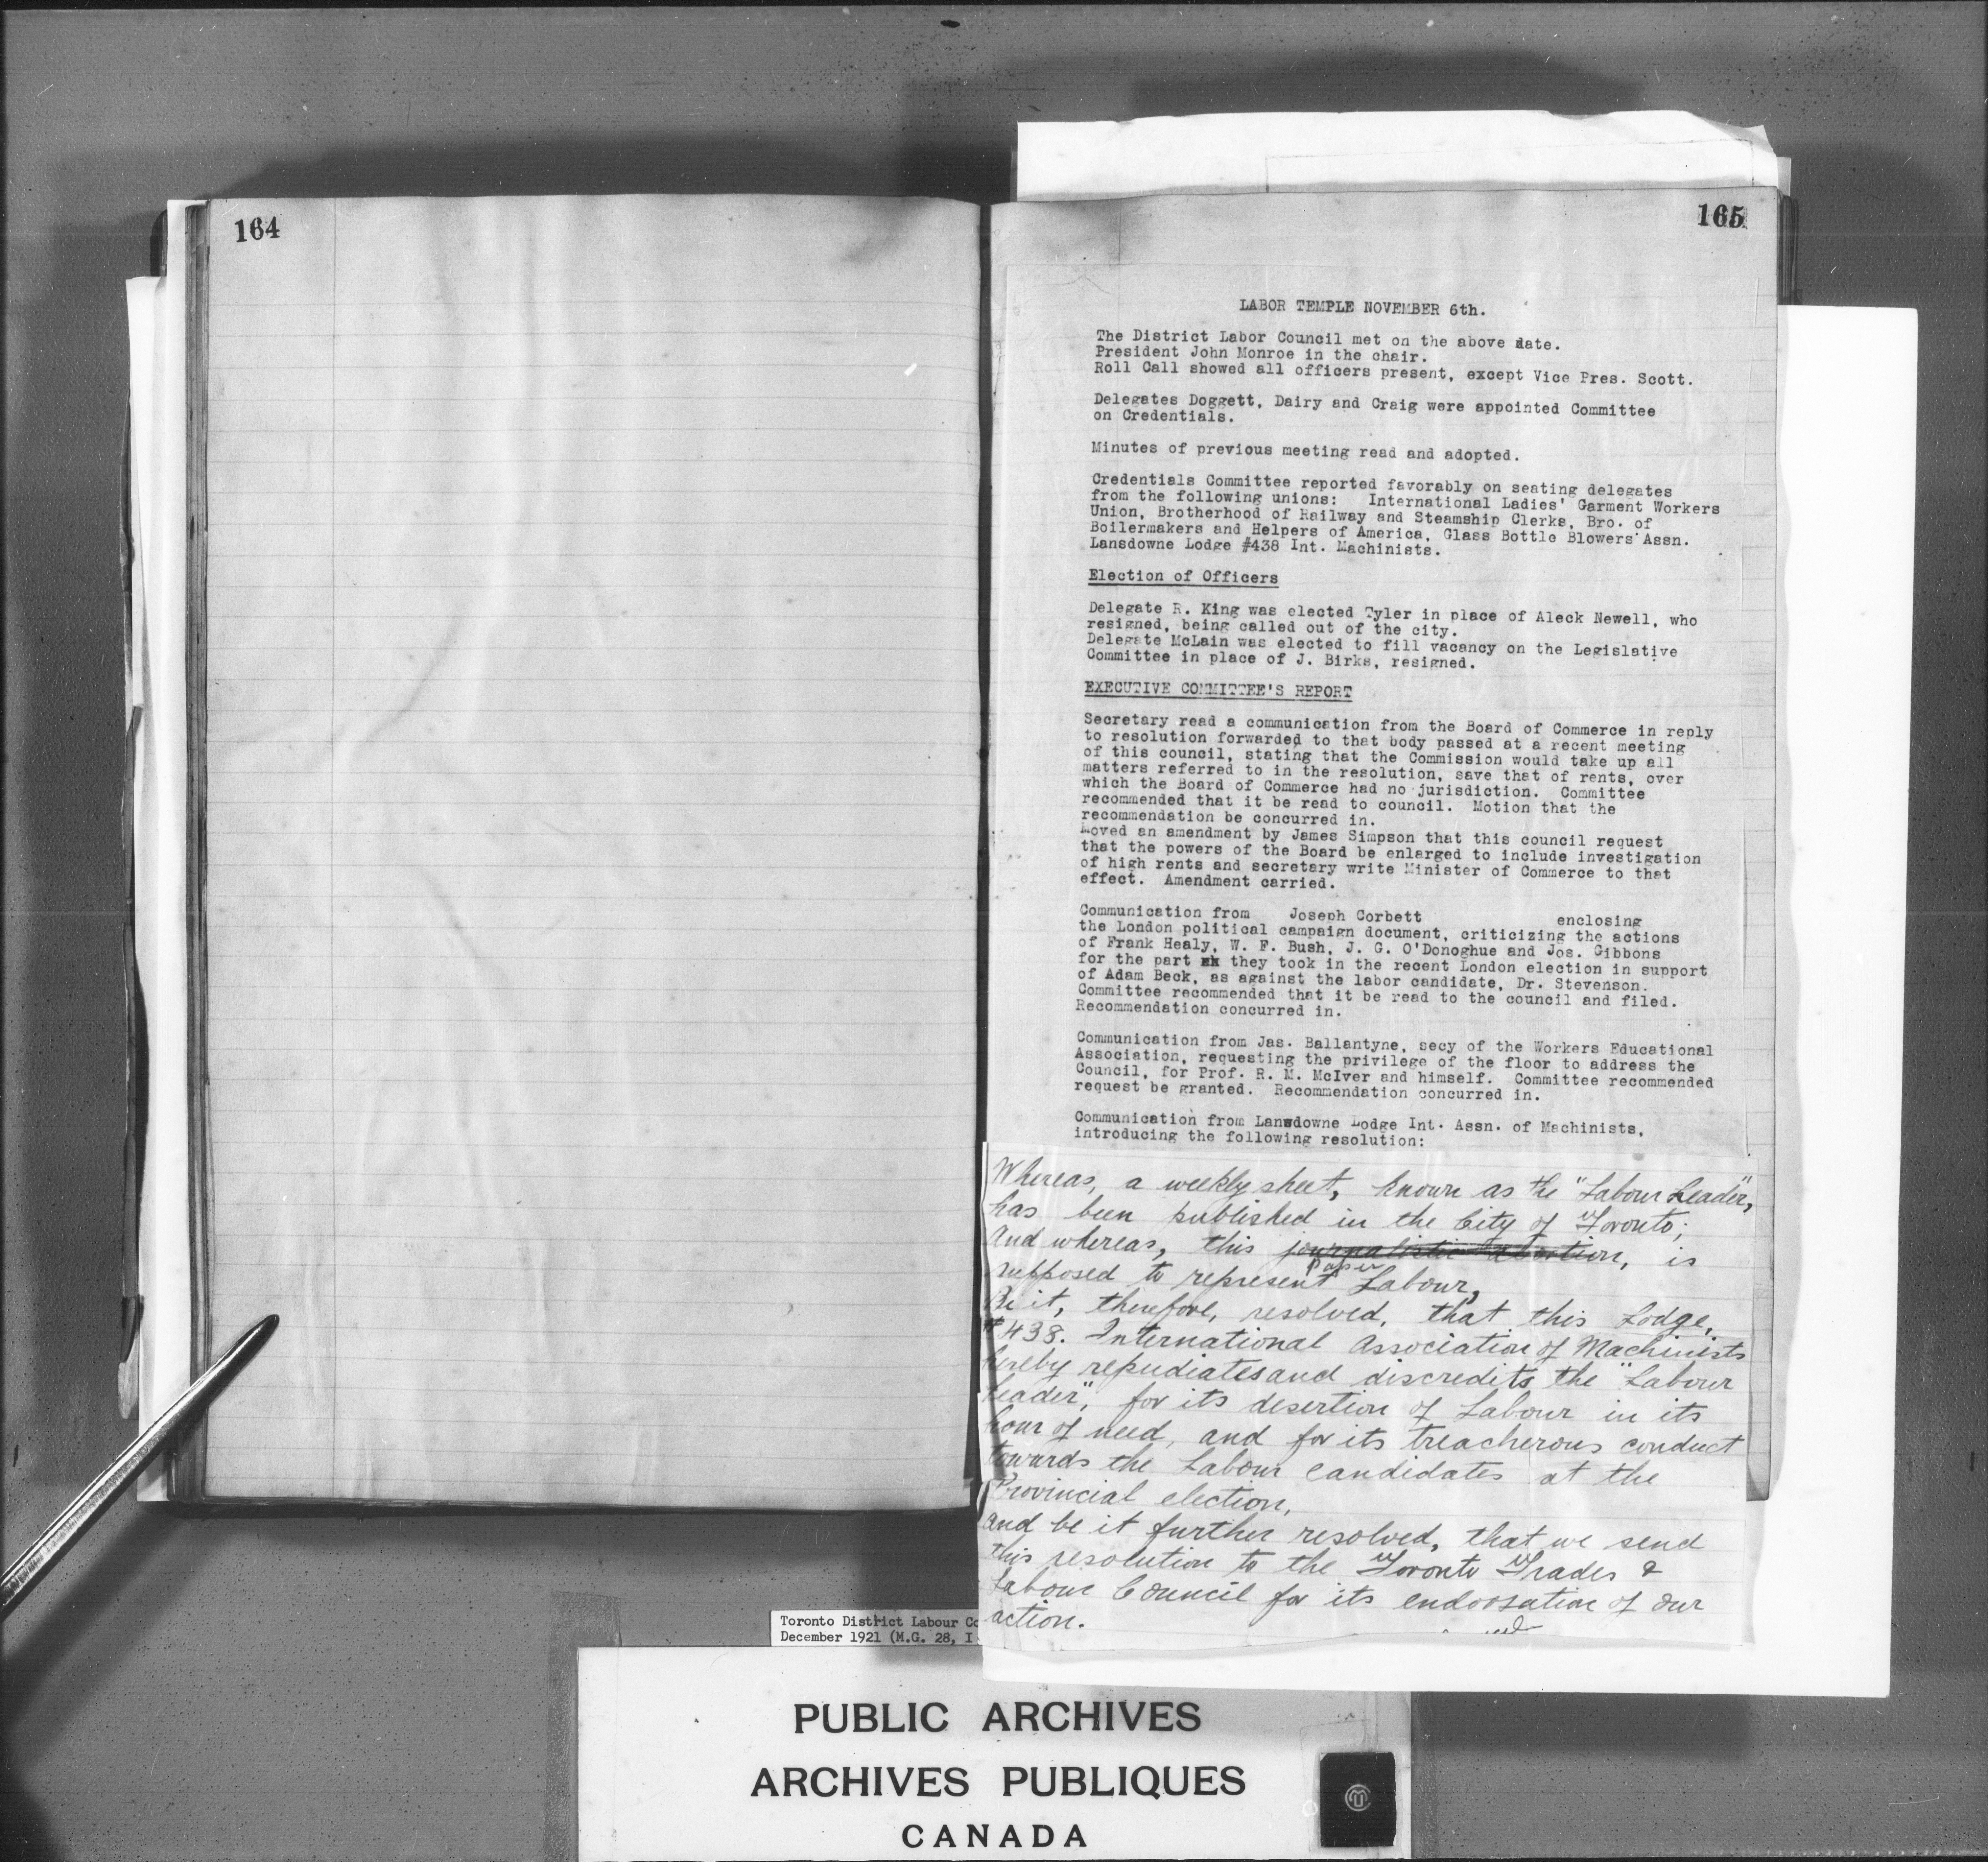 164
165
LABOR TEMPLE NOVEMBER 6th.
The District Labor Council met on the above date.
President John Monroe in the chair.
Roll Call showed all officers present, except Vice Pres. Scott.
Delegates Doggett, Dairy and Craig were appointed Committee
on Credentials.
Minutes of previous meeting read and adopted.
Credentials Committee reported favorably on seating delegates
from the following unions: International Ladies' Garment Workers
Union, Brotherhood of Railway and Steamship Clerks, Bro. of
Boilermakers and Helpers of America, Glass Bottle Blowers Assn.
Lansdowne Lodge #438 Int. Machinists.
Election of Officers
Delegate R. King was elected Tyler in place of Aleck Newell, who
resigned, being called out of the city.
Delegate McLain was elected to fill vacancy on the Legislative
Committee in place of J. Birks, resigned.
EXECUTIVE COMMITTEE'S REPORT
Secretary read a communication from the Board of Commerce in reply
to resolution forwarded to that body passed at a recent meeting
of this council, stating that the Commission would take up all
matters referred to in the resolution, save that of rents, over
which the Board of Commerce had no jurisdiction. Committee
recommended that it be read to council. Motion that the
recommendation be concurred in.
Moved an amendment by James Simpson that this council request
that the powers of the Board be enlarged to include investigation
of high rents and secretary write Minister of Commerce to that
effect. Amendment carried.
Communication from Joseph Corbett enclosing
the London political campaign document, criticizing the actions
of Frank Healy, W. F. Bush, J. G. O'Donoghue and Jos. Gibbons
for the part they took in the recent London election in support
of Adam Beck, as against the labor candidate, Dr. Stevenson.
Committee recommended that it be read to the council and filed.
Recommendation concurred in.
Communication from Jas. Ballantyne, secy of the Workers Educational
Association, requesting the privilege of the floor to address the
Council, for Prof. R. M. McIver and himself. Committee recommended
request be granted. Recommendation concurred in.
Communication from Lansdowne Lodge Int. Assn. of Machinists,
introducing the following resolution:
Whereas, a weekly sheet, known as the "Labour Leader",
has been published in the City of Toronto;
And whereas, this journalistic abortion, is
paper
supposed to represent Labour,
Be it, therefore, resolved, that this Lodge,
#438. International Association of Machinists
hereby repudiates and discredits the "Labour
Leader", for its desertion of Labour in its
hour of need, and for its treacherous conduct
towards the Labour candidates at the
Provincial election,
And be it further resolved, that we send
this resolution to the Toronto Trades &
Labour Council for its endorsation of our
action.
Toronto District Labour Co
December 1921 (M.G. 28, I
PUBLIC ARCHIVES
ARCHIVES PUBLIQUES
CANADA